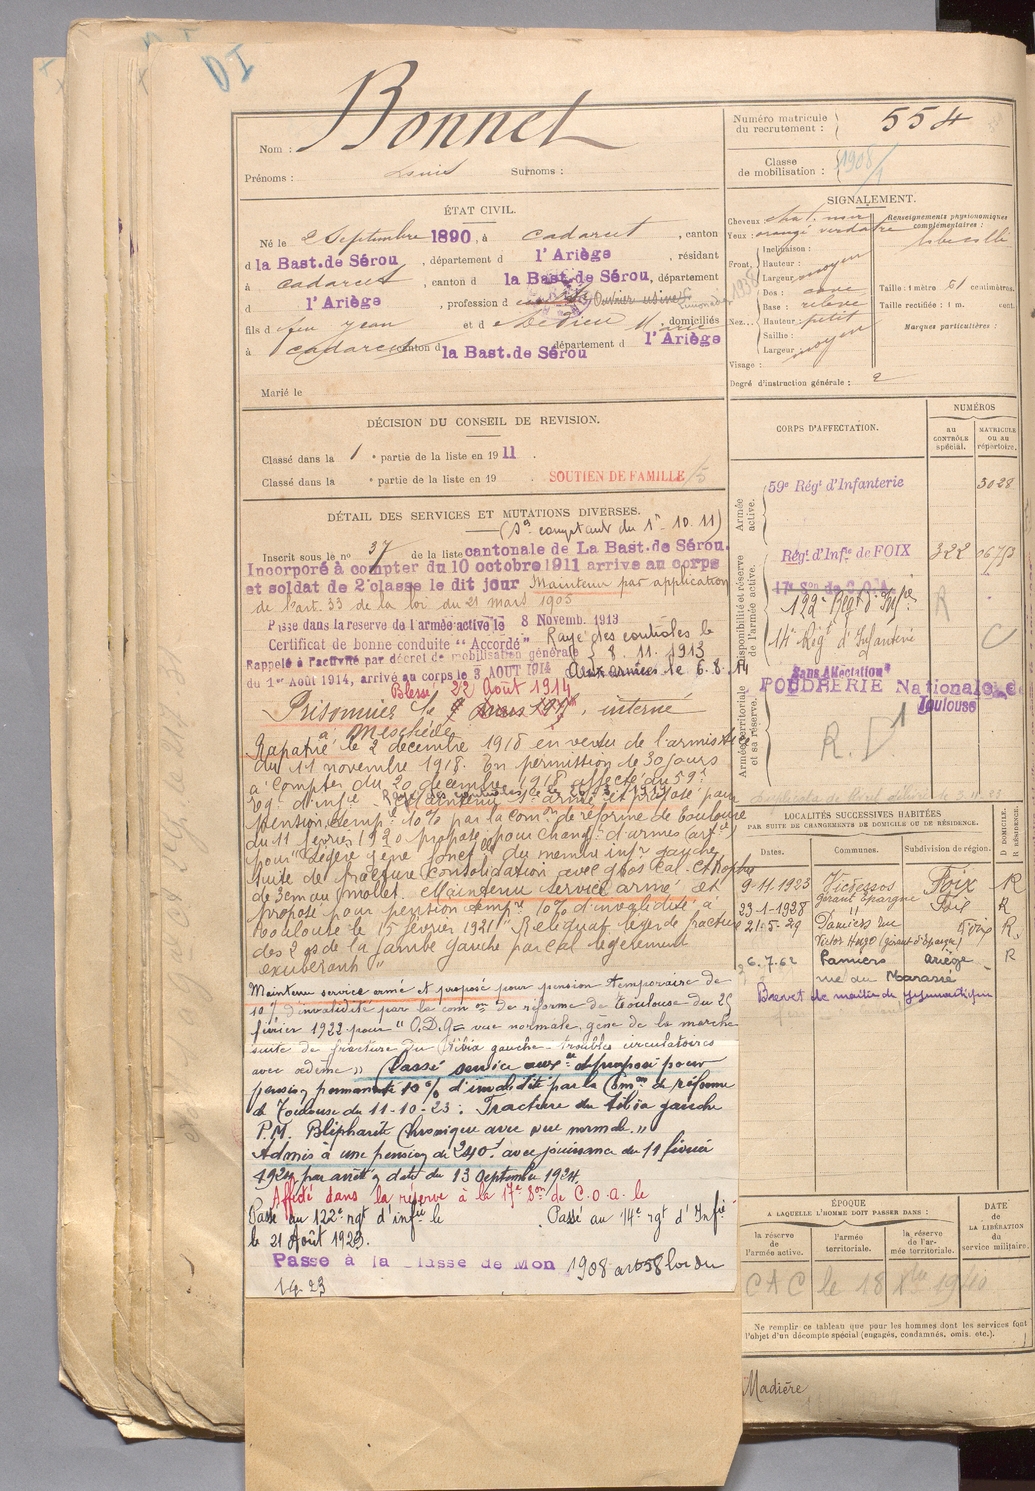 DI
Nom : Bonnet
Prénoms : Louis Surnoms :
Numéro matricule du recrutement : 554
Classe de mobilisation : 1908
ÉTAT CIVIL.
Né le 2 Septembre 1890, à Cadarcet, canton
d la Bast. de Sérou, département d l'Ariège, résidant
à Cadarcet, canton d la Bast. de Sérou, département
d l'Ariège, profession d
fils d feu Jean et d Marie, domiciliés
à Cadarcet canton d la Bast. de Sérou département d l'Ariège
Marié le
SIGNALEMENT.
Cheveux : chat. noir
Yeux : orangé verdâtre
Front, Inclinaison :
Hauteur :
Largeur : moyen
Nez... Dos : cave
Base : relevé
Hauteur : petit
Saillie :
Largeur : moyen
Visage :
Renseignements physionomiques complémentaires :
Taille : 1 mètre 61 centimètres.
Taille rectifiée : 1 m. cent.
Marques particulières :
Degré d'instruction générale : 2
DÉCISION DU CONSEIL DE REVISION.
Classé dans la 1e partie de la liste en 1911.
Classé dans la e partie de la liste en 19 . SOUTIEN DE FAMILLE
DÉTAIL DES SERVICES ET MUTATIONS DIVERSES.
(Sce comptant du 1er 10. 11)
Inscrit sous le no 37 de la liste cantonale de La Bast. de Sérou.
Incorporé à compter du 10 octobre 1911 arrivé au corps
et soldat de 2e classe le dit jour Maintenu par application
de l'art. 33 de la loi du 21 mars 1905
Passé dans la reserve de l'armée active le 8 Novemb. 1913
Certificat de bonne conduite "Accordé" Rayé des contrôles le
8. 11. 1913
Rappelé à l'activité par décret de mobilisation générale
du 1er Août 1914, arrivé au corps le 3 AOUT 1914 Aux armées le 6. 8. 14
Blessé 22 Août 1914
Prisonnier le , interné
à Meschède
Rapatrié le 2 décembre 1918 en vertu de l'armistice
du 11 novembre 1918. En permission de 30 jours
à compter du 20 décembre 1918 affecté au 59e
rég. d'infie Maintenu s. armé et proposé pour
pension temp. 10% par la comon de réforme de Toulouse
du 11 février 1920 proposé pour chang. d'armes
pour "Légère gêne fonct. du membre infr gauche
suite de fracture consolidation avec gros cal. Atrophie
de 3cm au mollet. Maintenu service armé et
proposé pour pension temp. 10% d'invalidité à
Toulouse le 15 février 1921 "Reliquat léger de fracture
des 2 os de la jambe gauche par cal légèrement
exubérant"
Maintenu service armé et proposé pour pension temporaire de
10% d'invalidité par la comon de réforme de Toulouse du 25
février 1922 pour "O.D.G = vue normale, gêne de la marche
suite de fracture du tibia gauche troubles circulatoires
avec œdème" Classé service auxre et proposé pour
pension permanente 10% d'invalidité par la Comon de réforme
de Toulouse du 11-10-23. Fracture du tibia gauche
P.M. Blépharite chronique avec vue normale."
Admis à une pension de 240f avec jouissance du 11 février
1924 par arrêté en date du 13 Septembre 1924.
Affecté dans la réserve à la 17e Son de C.O.A. le
Passé au 122e rgt d'infie le Passé au 14e rgt d'Infie
le 21 Août 1923.
Passé à la classe de Mon 1908 art 58 loi du
1.4.23
CORPS D'AFFECTATION.
NUMÉROS
au contrôle spécial.
matricule ou au répertoire.
Armée active.
59e Régt d'Infanterie 3028
Disponibilité et réserve de l'armée active.
Régt d'Infie de FOIX 322
17e Son de C.O.A.
122e Régt d'Infie R
14e Régt d'Infanterie C
Armée territoriale et sa réserve.
Sans Affectation
POUDRERIE Nationale de
Toulouse
LOCALITÉS SUCCESSIVES HABITÉES
PAR SUITE DE CHANGEMENTS DE DOMICILE OU DE RÉSIDENCE.
Dates. Communes. Subdivision de région. D DOMICILE. R RÉSIDENCE.
9-11-1923 Vicdessos Foix R
gérant Epargne
23-1-1928 " Foix R
21-5-29 Pamiers rue Foix R
Victor Hugo (gérant d'Epargne)
26.7.62 Pamiers Ariège R
rue du
Brevet de maître de gymnastique
ÉPOQUE
A LAQUELLE L'HOMME DOIT PASSER DANS :
la réserve de l'armée active.
l'armée territoriale.
la réserve de l'armée territoriale.
DATE de LA LIBÉRATION du service militaire.
CAC le 18 1940
Ne remplir ce tableau que pour les hommes dont les services font
l'objet d'un décompte spécial (engagés, condamnés, omis. etc.).
Madière